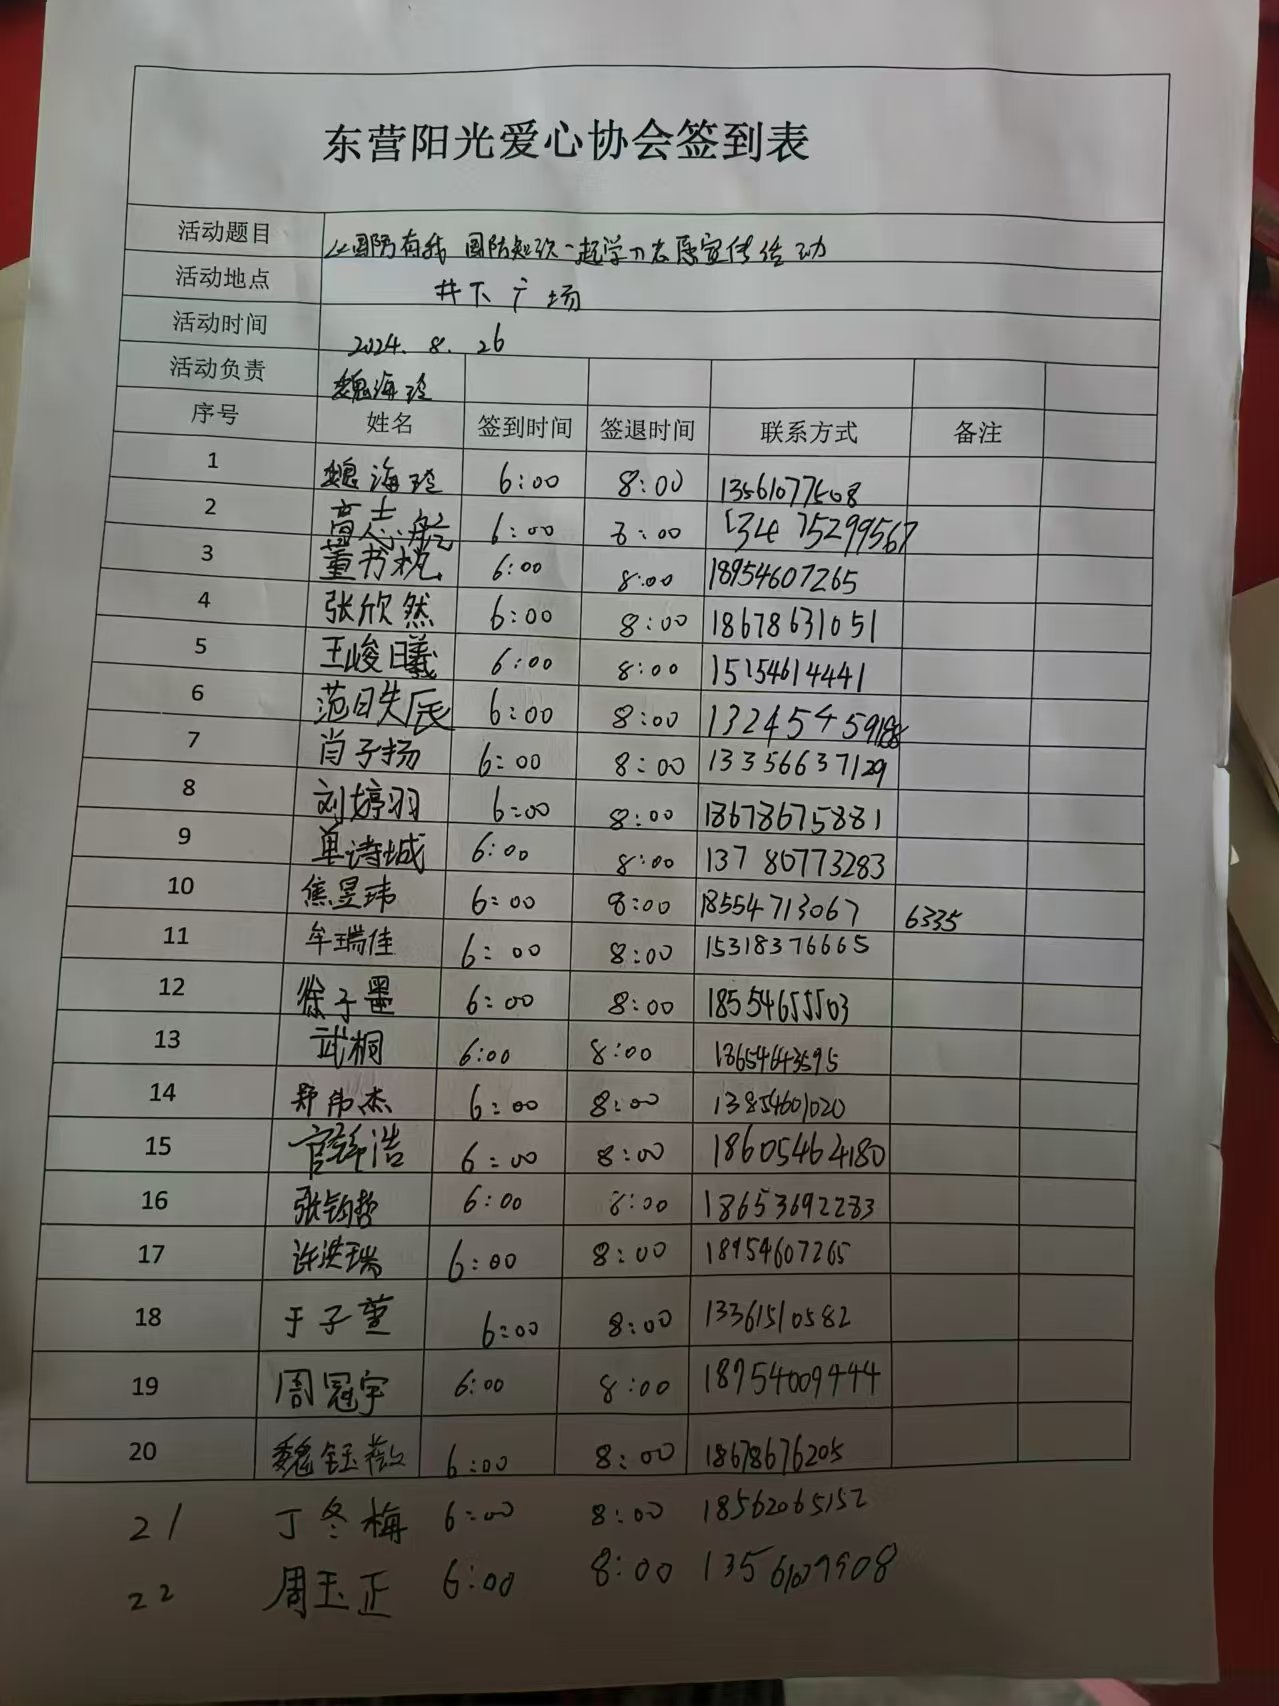 东营阳光爱心协会签到表
活动题目 国防有我 国防知识一起学 志愿宣传活动
活动地点 井下广场
活动时间 2024.8.26
活动负责 魏海玲
序号 姓名 签到时间 签退时间 联系方式 备注
1 魏海玲 6:00 8:00 13561077508
2 高志航 6:00 8:00 13475299567
3 董书 6:00 8:00 18954607265
4 张欣然 6:00 8:00 18678631051
5 王峻曦 6:00 8:00 15154614441
6 范轶辰 6:00 8:00
7 肖子扬 6:00 8:00 13356637129
8 刘婷羽 6:00 8:00 18678675881
9 单诗城 6:00 8:00 13780773283
10 焦昱玮 6:00 8:00 18554713067 6335
11 牟瑞佳 6:00 8:00 15318376665
12 徐子墨 6:00 8:00 18554655503
13 武桐 6:00 8:00 18654643595
14 郑伟杰 6:00 8:00 13854601020
15 官 浩 6:00 8:00 18605464180
16 张钧哲 6:00 8:00 18653692283
17 许洪瑞 6:00 8:00 18954607265
18 于子萱 6:00 8:00 13361510582
19 周冠宇 6:00 8:00 18954009444
20 魏钰薇 6:00 8:00 18678676205
21 丁冬梅 6:00 8:00 18562065152
22 周玉正 6:00 8:00